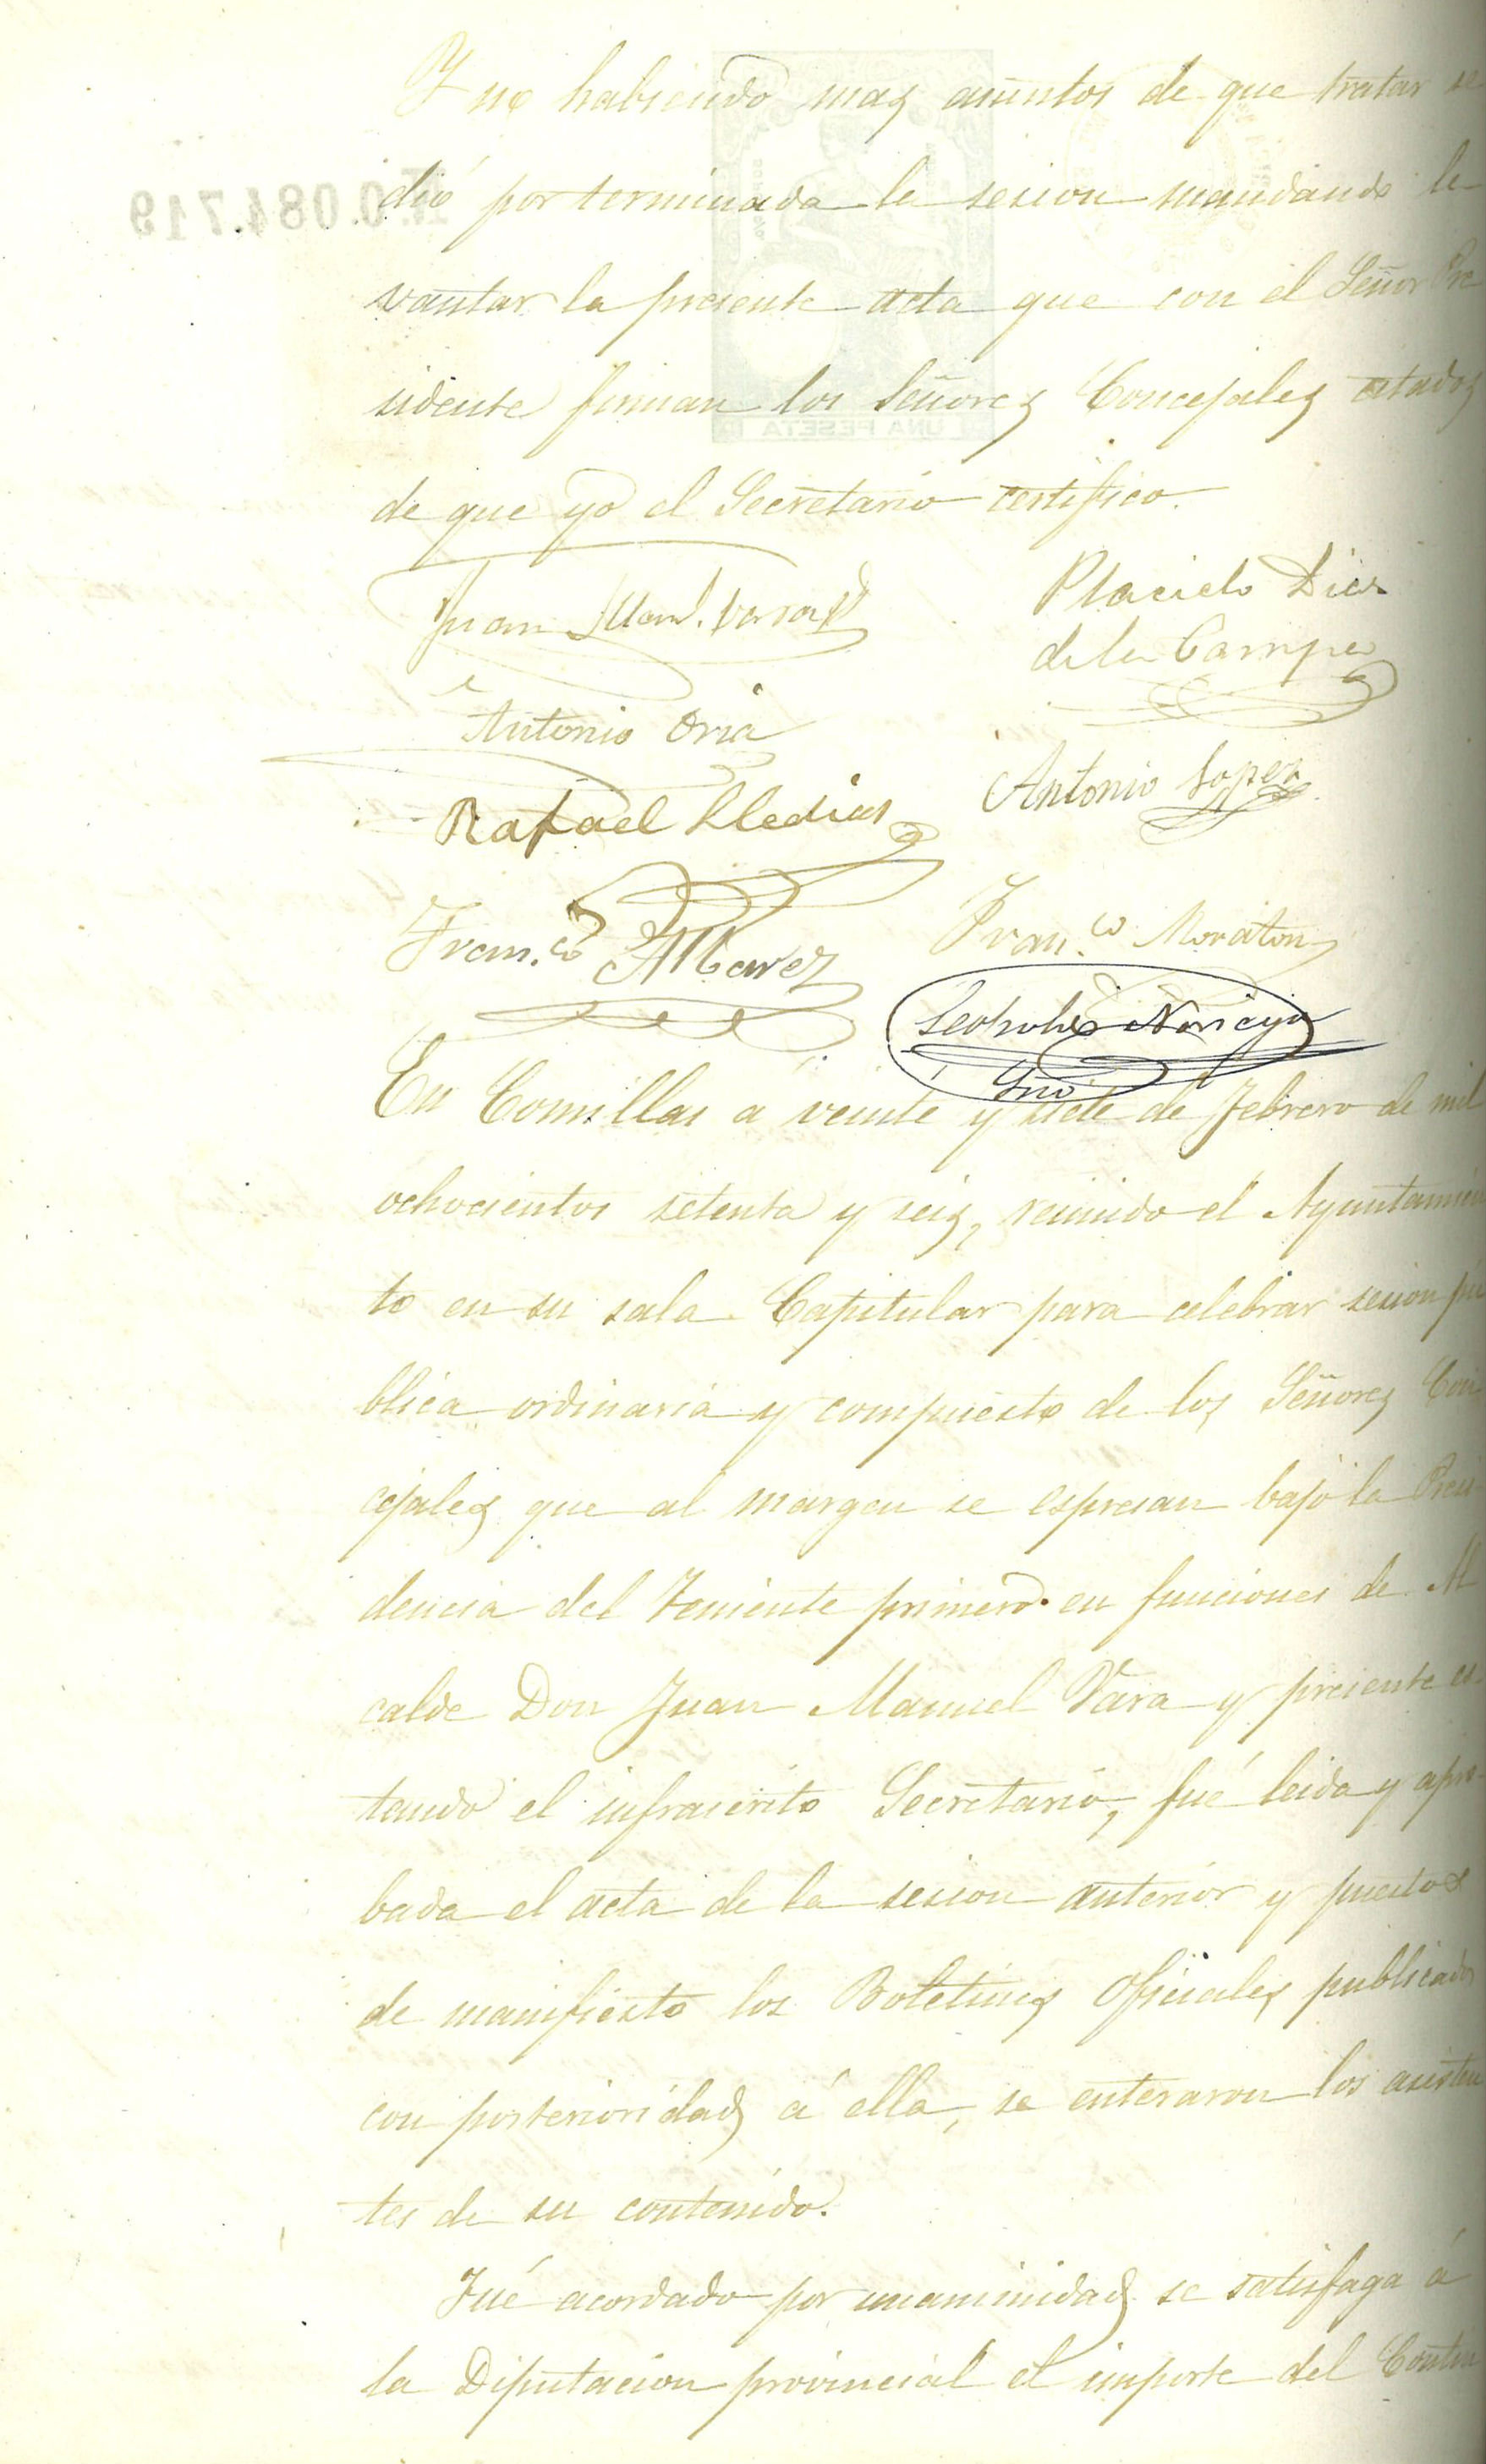 Y no habiendo mas asuntos de que tratar se
dió por terminada la sesion mandando le
vantar la presente acta que con el Señor Pre
sidente firman los Señores Concejales citados
de que yo el Secretario certifico.
Juan Man. Vara
Placido Diaz
de la Campa
Antonio Oria
Antonio Lopez
Rafael Lledias
Fran.co Alvarez
Fran.co Moraton
Leopoldo Noriega
Srio
En Comillas á veinte y siete de Febrero de mil
ochocientos setenta y seis, reunido el Ayuntamien
to en su sala Capitular para celebrar sesion pú
blica ordinaria y compuesto de los Señores Con
cejales que al margen se espresan bajo la Presi
dencia del Teniente primero en funciones de Al
calde Don Juan Manuel Vara y presente es
tando el infrascrito Secretario, fué leida y apro
bada el acta de la sesion anterior y puestos
de manifiesto los Boletines Oficiales publicados
con posterioridad á ella, se enteraron los asisten
tes de su contenido.
Fué acordado por unanimidad se satisfaga á
la Diputacion provincial el importe del Contin
N.0.084.719
UNA PESETA